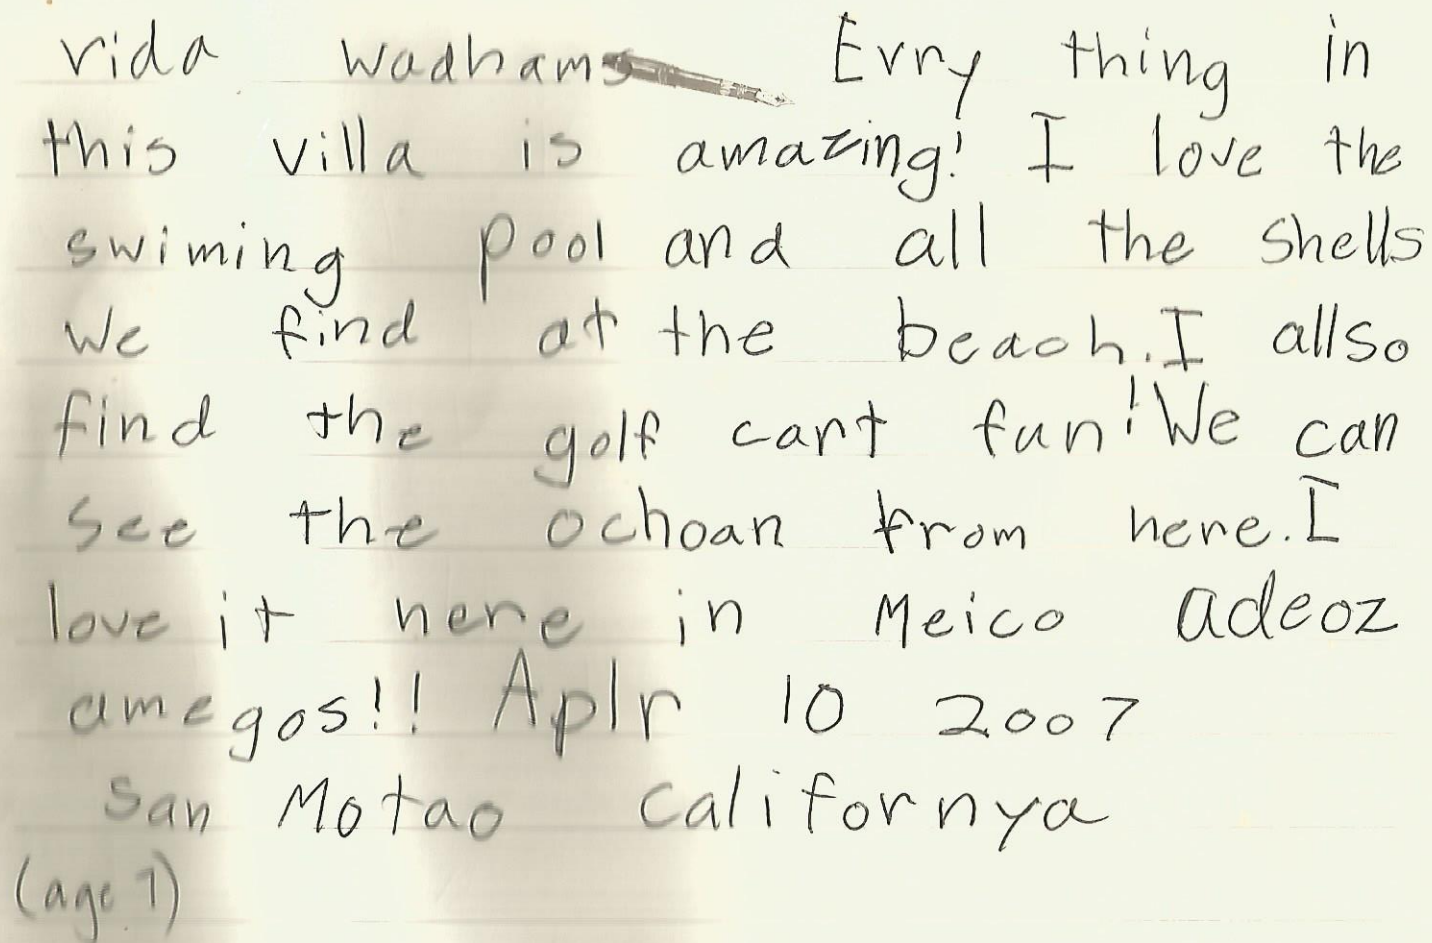 rida wadhams Evry thing in
this villa is amazing! I love the
swiming pool and all the shells
we find at the beach. I allso
find the golf cart fun! We can
see the ochoan from here. I
love it here in Meico adeoz
amegos!! Aplr 10 2007
San Motao californya
(age 7)